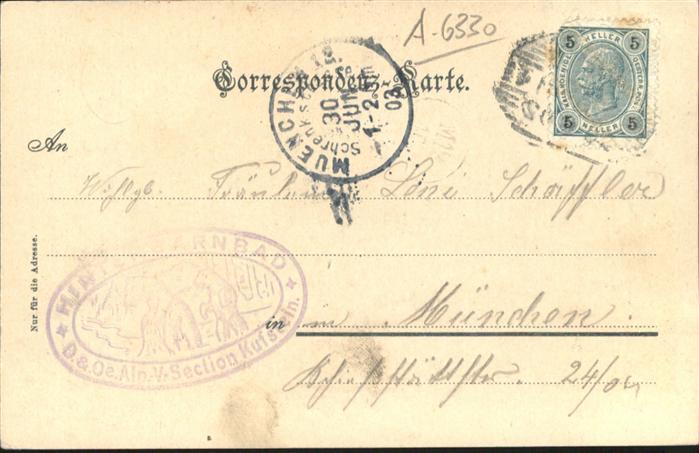 A-6330
Correspondenz-Karte.
MUENCHEN 12.
Schrenkstr.
30 JUN.
1-2 Nm
03
5 HELLER 5
KAIS. KOENIGL. OESTERR. POST
5 HELLER 5
An
Wohlgb. Fräulein Leni Schäffler
Nur für die Adresse.
HINTERBÄRNBAD
D. & Oe. Alp. V. Section Kufstein.
in in München.
24/